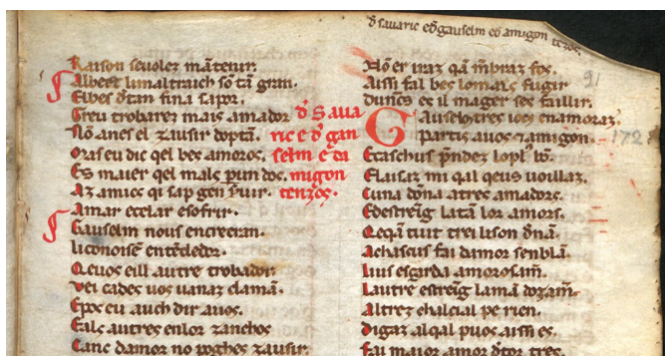 d̄ sauarie ed̄ gauselm ed amigon tezos.
Raison seuoler mātenir.
Albert limaltraich sō tā gran.
Elbes dtan fina sapor.
Greu trobarez mais amador
Nō anes el zausir doptā.
Oras eu dic qel bes amoros.
Es maier qel mals pun doc.
Az amics qi sap gen
Amar ecelar esofrir.
Gauselm nous encreiran.
li conoisē entēdedor.
Qeuos eill autre trobador
Vei cades uos uanaz clamā.
Epos eu auch dir auos.
Eals autres enlor zanchos
Canc damor no poghes zausir.
d̄ S aua
ric e d̄ gau
selm e da
migon
tenzos.
Nō er iraz qā mbraz fos.
Aissi fal bes lo mals fugir
Duncs es il mager se faillir.
Gauselm tres iocs enamoraz
Partis auos 7 amigon.
Ecaschus pndez lo pl9 bo.
Elaisaz mi qal qeus uoillaz.
Cuna dōna a tres amadors.
Edestreig la tā lor amors.
Qeqā tuit trei li son dnā.
A chascus fai damor senblā.
Luis esgarda amorosam̄.
Lautre estreig la mā dozam̄.
Al terz chalcial pe rien.
Digaz al qal puos aissi es.
Fai maior amor dtoz tres.
91
172